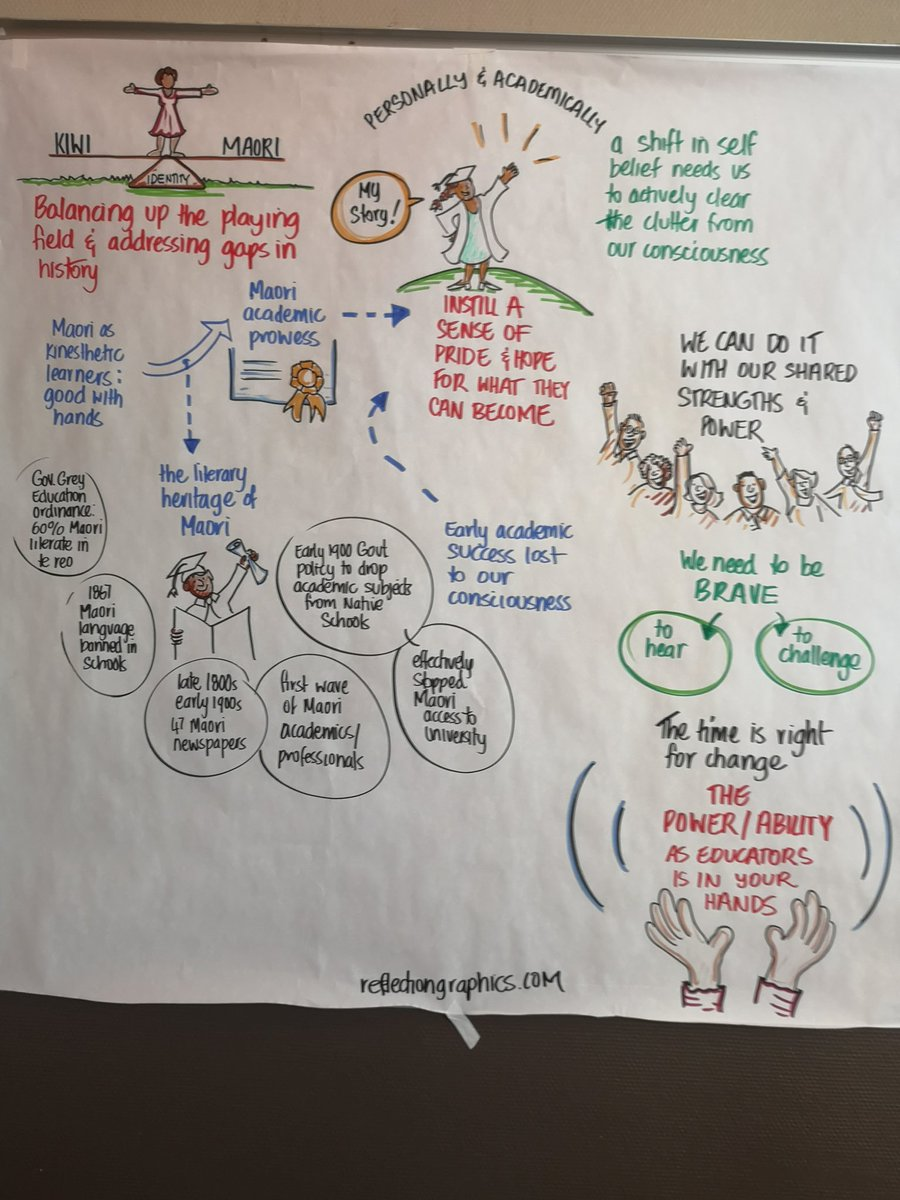 KIWI
MAORI
IDENTITY
Balancing up the playing
field & addressing gaps in
history
PERSONALLY & ACADEMICALLY
My
Story!
a shift in self
belief needs us
to actively clear
the clutter from
our consciousness
Maori as
Kinesthetic
learners:
good with
hands
Maori
academic
prowess
INSTILL A
SENSE OF
PRIDE & HOPE
FOR WHAT THEY
CAN BECOME
WE CAN DO IT
WITH OUR SHARED
STRENGTHS &
POWER
the literary
heritage of
Maori
Gov. Grey
Education
ordinance:
60% Maori
literate in
te reo
1867
Maori
language
banned in
Schools
late 1800s
early 1900s
47 Maori
newspapers
first wave
of Maori
academics/
professionals
Early 1900 Govt
policy to drop
academic subjects
from Native
Schools
effectively
Stopped
Maori
access to
University
Early academic
success lost
to our
consciousness
We need to be
BRAVE
to
hear
to
challenge
The time is right
for change
THE
POWER/ABILITY
AS EDUCATORS
IS IN YOUR
HANDS
reflectiongraphics.COM